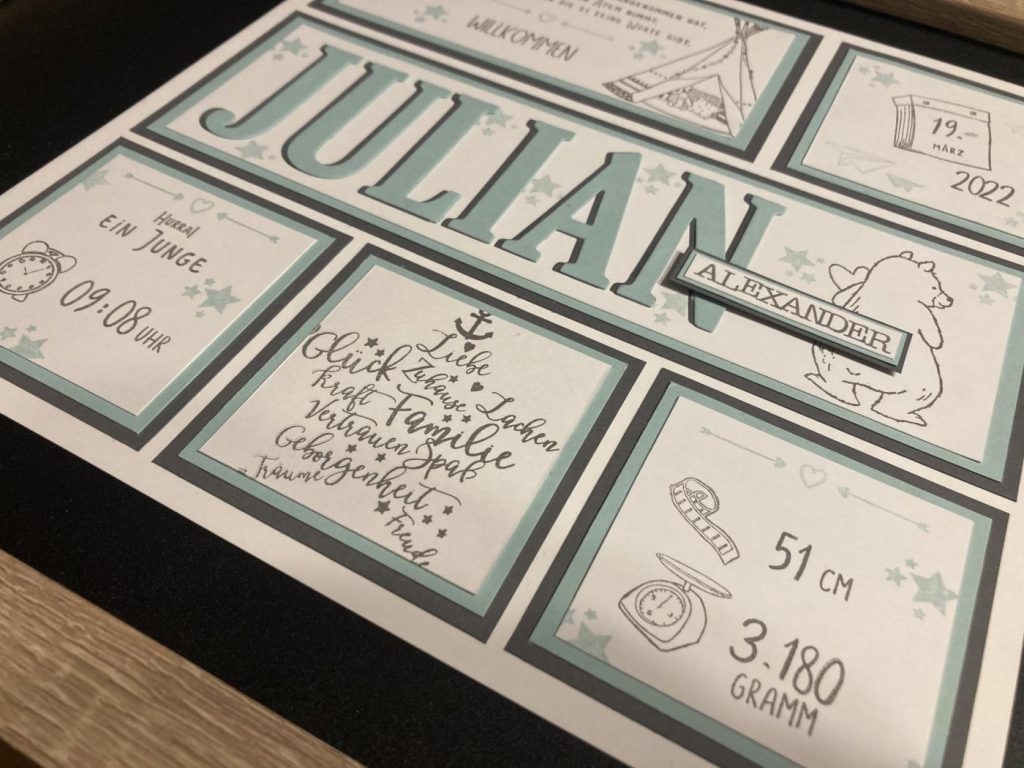 ATEM NIMMT,
DIE ES KEINE WORTE GIBT.
WILLKOMMEN
19.
MÄRZ
2022
JULIAN
ALEXANDER
HURRA!
EIN JUNGE
09:08 UHR
Liebe
Glück
Zuhause
Kraft
Lachen
Familie
Vertrauen
Spaß
Geborgenheit
Träume
Freude
51 CM
3.180
GRAMM